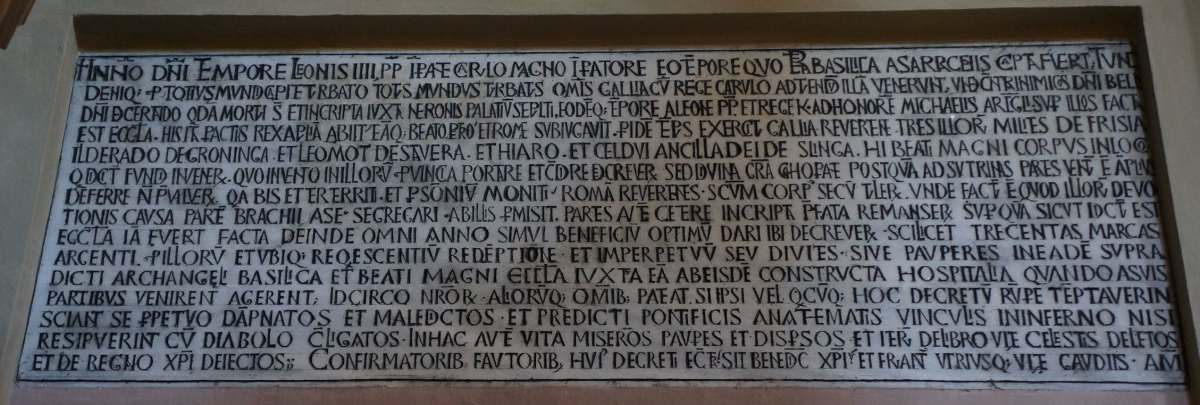 ANNO DNI TEMPORE LEONIS IIII PP IPATE CARLO MAGNO IPATORE EO TEPORE QUO BASILICA A SARRACENIS CEPTA FVERT, TVNC
DENIQ; P TOTIUS MUNDI TVRBATO TOTVS MVNDVS TVRBATUS OMIS GALLIA CV REGE CARVLO ADVENTV ILLA VENERVNT INIMICIS DNI BEL
DNI QDA MORTVI S ET IN CRIPTA IVXTA NERONIS PALATIV SEPLTI. EODEQ; TEPORE A LEONE PP ET REGE K AD HONORE MICHAELIS ARCHANGELI SVP ILLOS FACTA
EST ECCLA. HIS ITA PACTIS REX APVLIA ABIIT EAQ; BEATO PETRO ET ROME SVBIVGAVIT. EXERCITVS GALLIA REVERENTES TRES ILLORV MILITES DE FRISIA
ILDERADO DE GRONINGA. ET LEOMOT DE STAVERA. ET HIARO. ET CELDVI ANCILLA DEI DE SLINGA. HI BEATI MAGNI CORPVS IN LOCO
QD DCT FVNDI INVENER. QVO INVENTO IN ILLORV PVINCIA PORTARE DECREVER SED DIVINA POSTQVA AD SVTRINAS PARTES VENIT
DEFERRE N PVALVER. QA BIS ET TER ERRITI. ET P SONIV MONITI. ROMA REVERENTES. SCVM CORP SECV TVLER. VNDE FACTV E QVOD ILLOR DEVO
TIONIS CAVSA PARTE BRACHII A SE SEGREGARI ABILIS PMISIT. PARTES AVTE CETERE IN CRIPTA PFATA REMANSER SVP QVA SICVT IDCT EST
ECCLA IA FVERT FACTA DEINDE OMNI ANNO SIMVL BENEFICIV OPTIMV DARI IBI DECREVER. SCILICET TRECENTAS MARCAS
ARGENTI. P ILLORV ET VBIQ; REQESCENTIV REDEPTIOE. ET IMPERPETVV SEV DIVITES. SIVE PAVPERES INEADE SVPRA
DICTI ARCHANGELI BASILICA ET BEATI MAGNI ECCLA IVXTA EA AB EISDE CONSTRVCTA HOSPITALIA QUANDO A SVIS
PARTIBVS VENIRENT AGERENT, IDCIRCO NROR ALIORVQ; OMIB; PATEAT. SI IPSI VEL QCVQ; HOC DECRETV RVPE TEPTAVERIN
SCIANT SE PPETVO DAPNATOS ET MALEDCTOS ET PREDICTI PONTIFICIS ANATEMATIS VINCVLIS IN INFERNO NISI
RESIPVERINT CV DIABOLO CLIGATOS. IN HAC AVTE VITA MISEROS PAVPES ET DISPSOS ET ITER DE LIBRO VITE CELESTIS DELETOS
ET DE REGNO XPI DEIECTOS; CONFIRMATORIB FAVTORIB, HVI DECRETI SIT BENEDC XPI ET FRAN VTRIVSQ; VITE GAVDIIS. AM